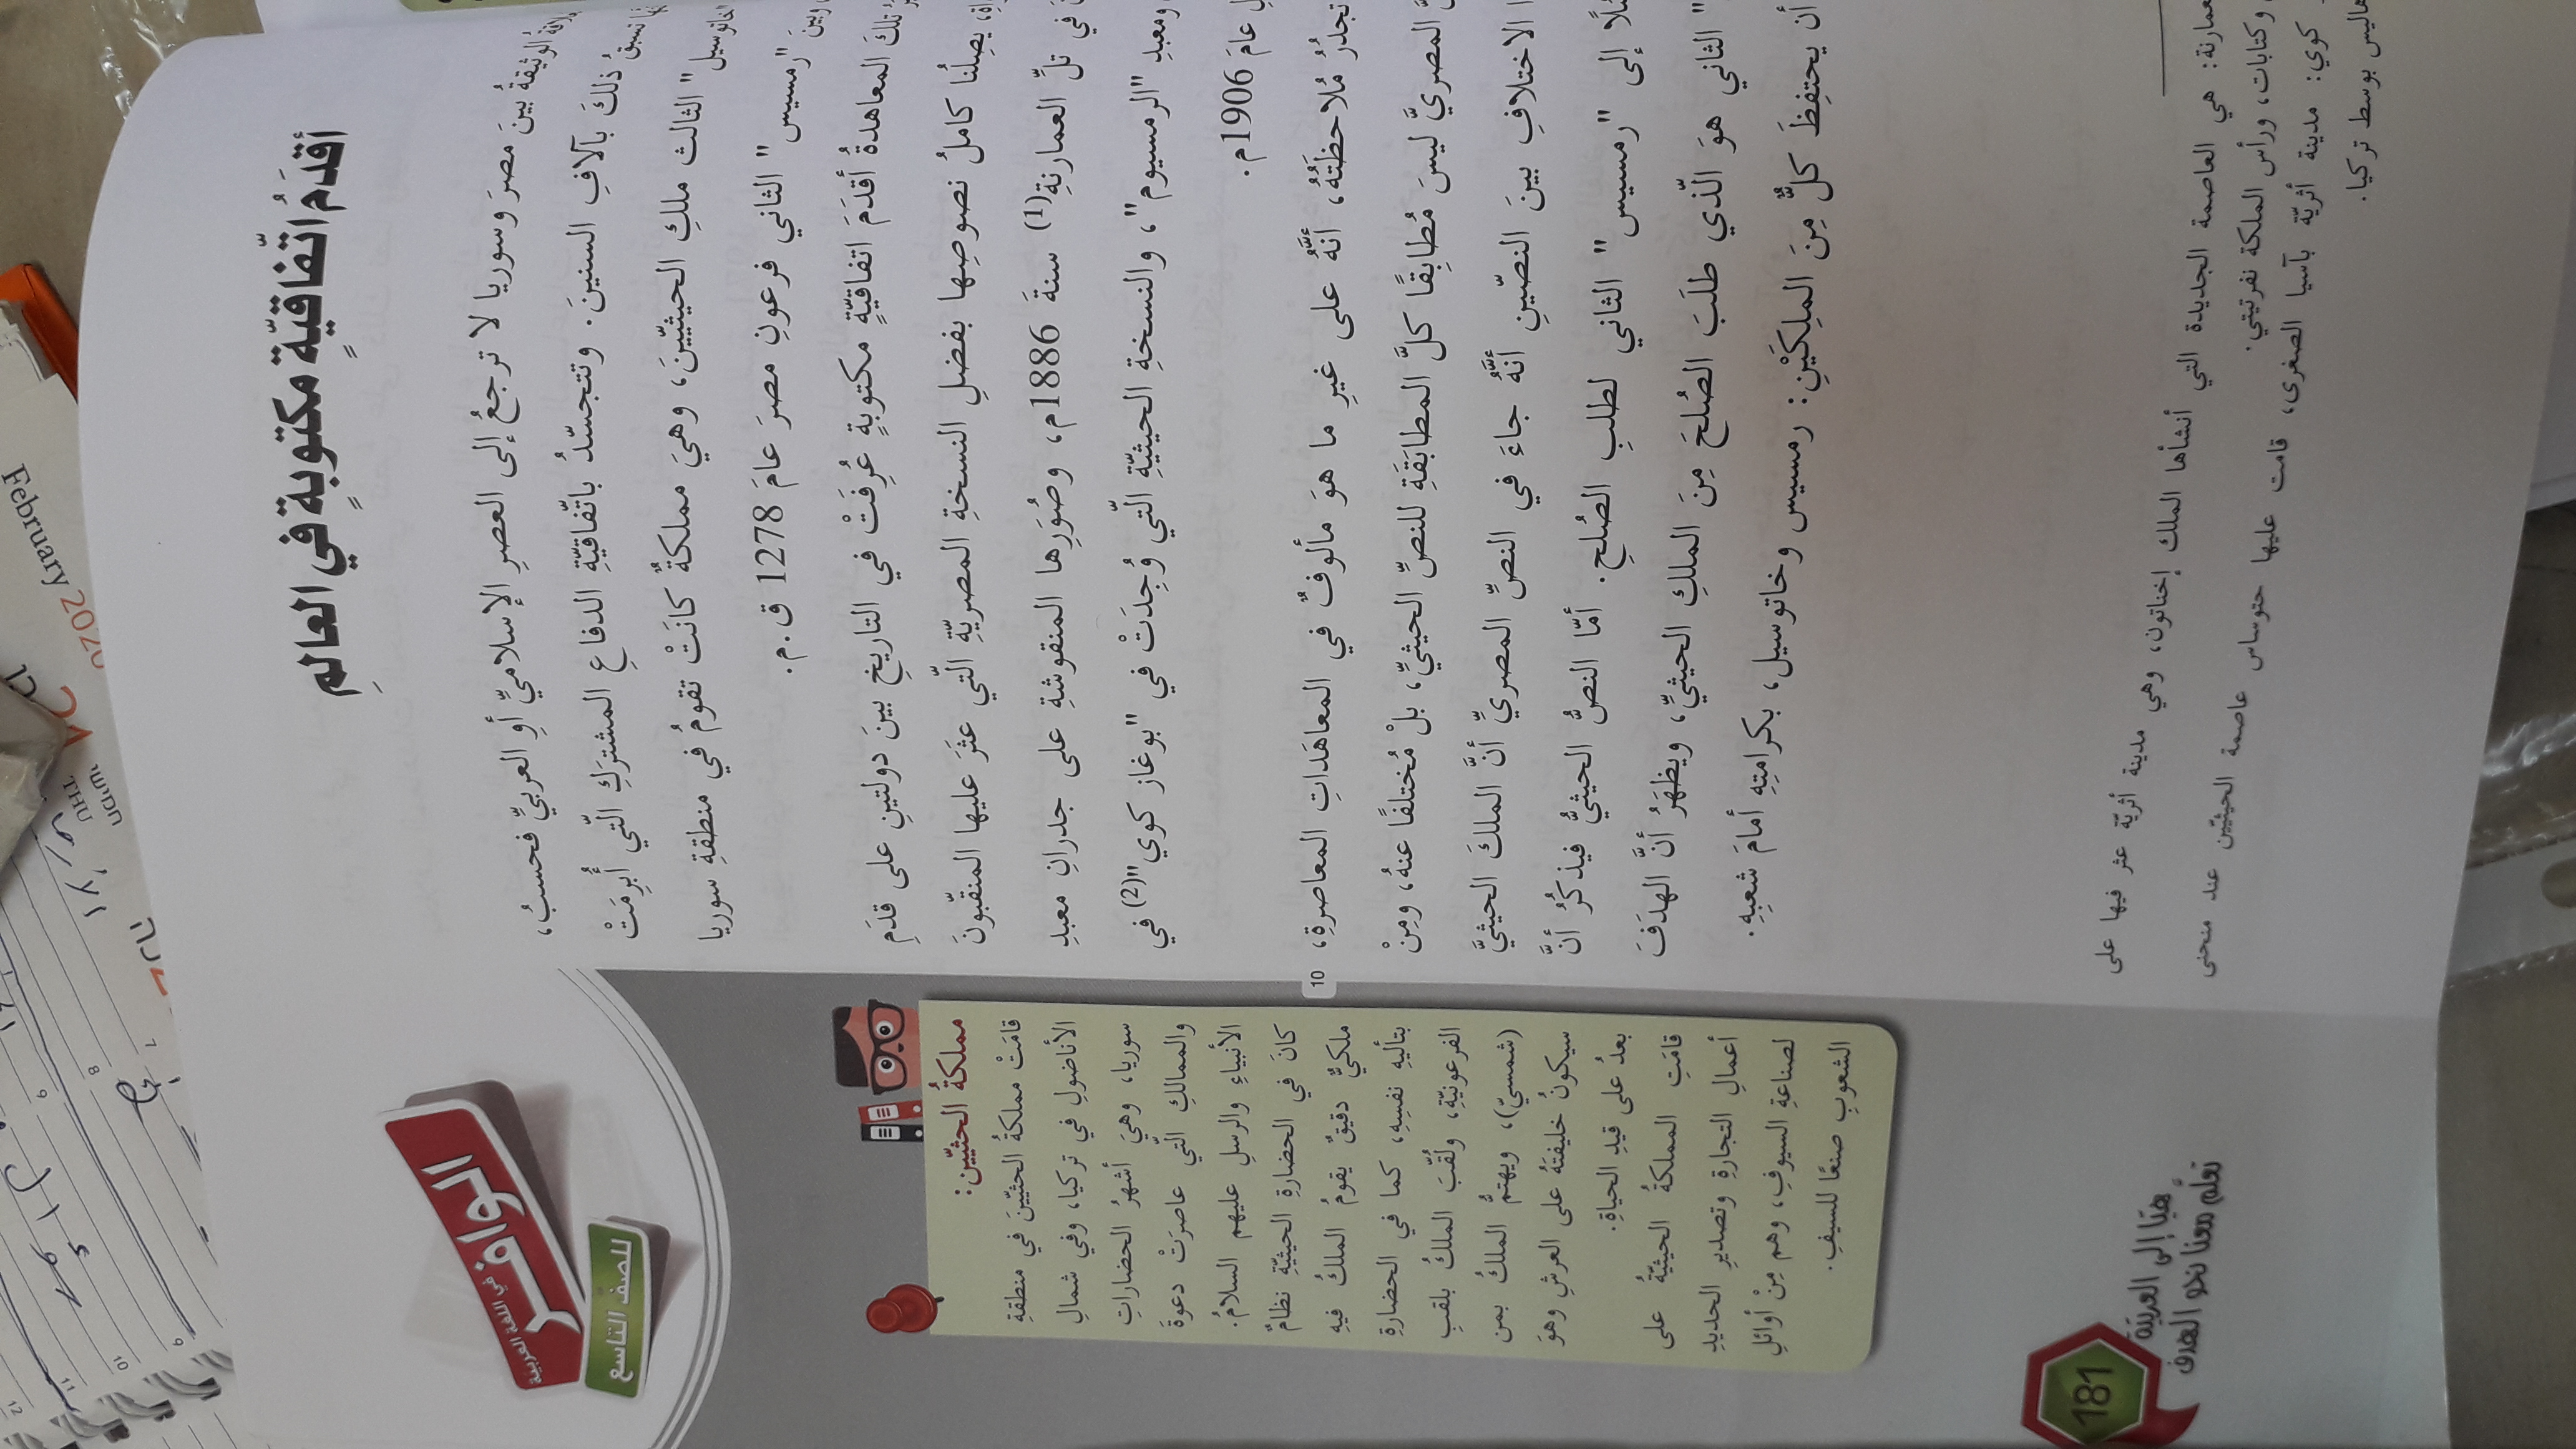 أقدَمُ اتّفاقيّةٍ مكتوبةٍ في العالمِ
الوثيقةُ بينَ مصرَ وسوريا لا ترجعُ إلى العصرِ الإسلاميِّ أوِ العربيِّ فحسبُ،
تسبقُ ذلكَ بآلافِ السنينَ. وتتجسّدُ باتّفاقيّةِ الدفاعِ المشتركِ الّتي أُبرِمَتْ
"خاتوسيل" الثالث ملكِ الحيثيّينَ، وهيَ مملكةٌ كانَتْ تقومُ في منطقةِ سوريا
وبينَ "رمسيس" الثاني فرعونِ مصرَ عامَ 1278 ق.م.
تلكَ المعاهدةُ أقدَمَ اتفاقيّةٍ مكتوبةٍ عُرِفَتْ في التاريخِ بينَ دولتينِ على قدَمِ
يصِلُنا كاملُ نصوصِها بفضلِ النسخةِ المصريّةِ الّتي عثَرَ عليها المنقّبونَ
في تلِّ العمارنةِ(1) سنةَ 1886م، وصُوَرِها المنقوشةِ على جدرانِ معبدِ
ومعبدِ "الرمسيوم"، والنسخةِ الحيثيّةِ الّتي وُجِدَتْ في "بوغاز كوي"(2) في
عامَ 1906م.
10
تجدُرُ مُلاحظَتُهُ، أنّهُ على غيرِ ما هوَ مألوفٌ في المعاهَداتِ المعاصرةِ،
المصريَّ ليسَ مُطابِقًا كلَّ المطابَقةِ للنصِّ الحيثيِّ، بلْ مُختلفًا عنهُ، ومِنْ
الاختلافِ بينَ النصّينِ أنّهُ جاءَ في النصِّ المصريِّ أنَّ الملكَ الحيثيَّ
إلى "رمسيس" الثاني لطلبِ الصُلحِ. أمّا النصُّ الحيثيُّ فيذكُرُ أنَّ
" الثاني هوَ الّذي طلَبَ الصُلحَ مِنَ الملكِ الحيثيِّ، ويظهَرُ أنَّ الهدَفَ
أن يحتفِظَ كلٌّ مِنَ الملِكَيْنِ: رمسيس وخاتوسيل، بكرامتِهِ أمامَ شعبِهِ.
هي العاصمة الجديدة التي أنشأها الملك إخناتون، وهي مدينة أثريّة عثر فيها على
وكتابات، ورأس الملكة نفرتيتي.
كوي: مدينة أثريّة بآسيا الصغرى، قامت عليها حتوساس عاصمة الحيثيّين عند منحنى
هاليس بوسط تركيا.
الوافر
في اللغة العربية
للصفّ التاسع
مملكةُ الحثيّين:
قامَتْ مملكةُ الحثيّينَ في منطقةِ
الأناضولِ في تركيا، وفي شمالِ
سوريا، وهيَ أشهرُ الحضاراتِ
والممالكِ الّتي عاصرَتْ دعوةَ
الأنبياءِ والرسلِ عليهم السلامُ.
كانَ في الحضارةِ الحيثيّةِ نظامٌ
ملكيٌّ دقيقٌ يقومُ الملكُ فيهِ
بتأليهِ نفسِهِ، كما في الحضارةِ
الفرعونيّةِ، ولُقّبَ الملكُ بلقبِ
(شمسيّ)، ويهتمُّ الملكُ بمن
سيكونُ خليفتَهُ على العرشِ وهوَ
بعدُ على قيدِ الحياةِ.
قامَتِ المملكةُ الحيثيّةُ على
أعمالِ التجارةِ وتصديرِ الحديدِ
لصناعةِ السيوفِ، وهم مِنْ أوائلِ
الشعوبِ صنعًا للسيفِ.
181
هيّا إلى العربيّة
تعلّم معنا نحو الهدف
February 2020